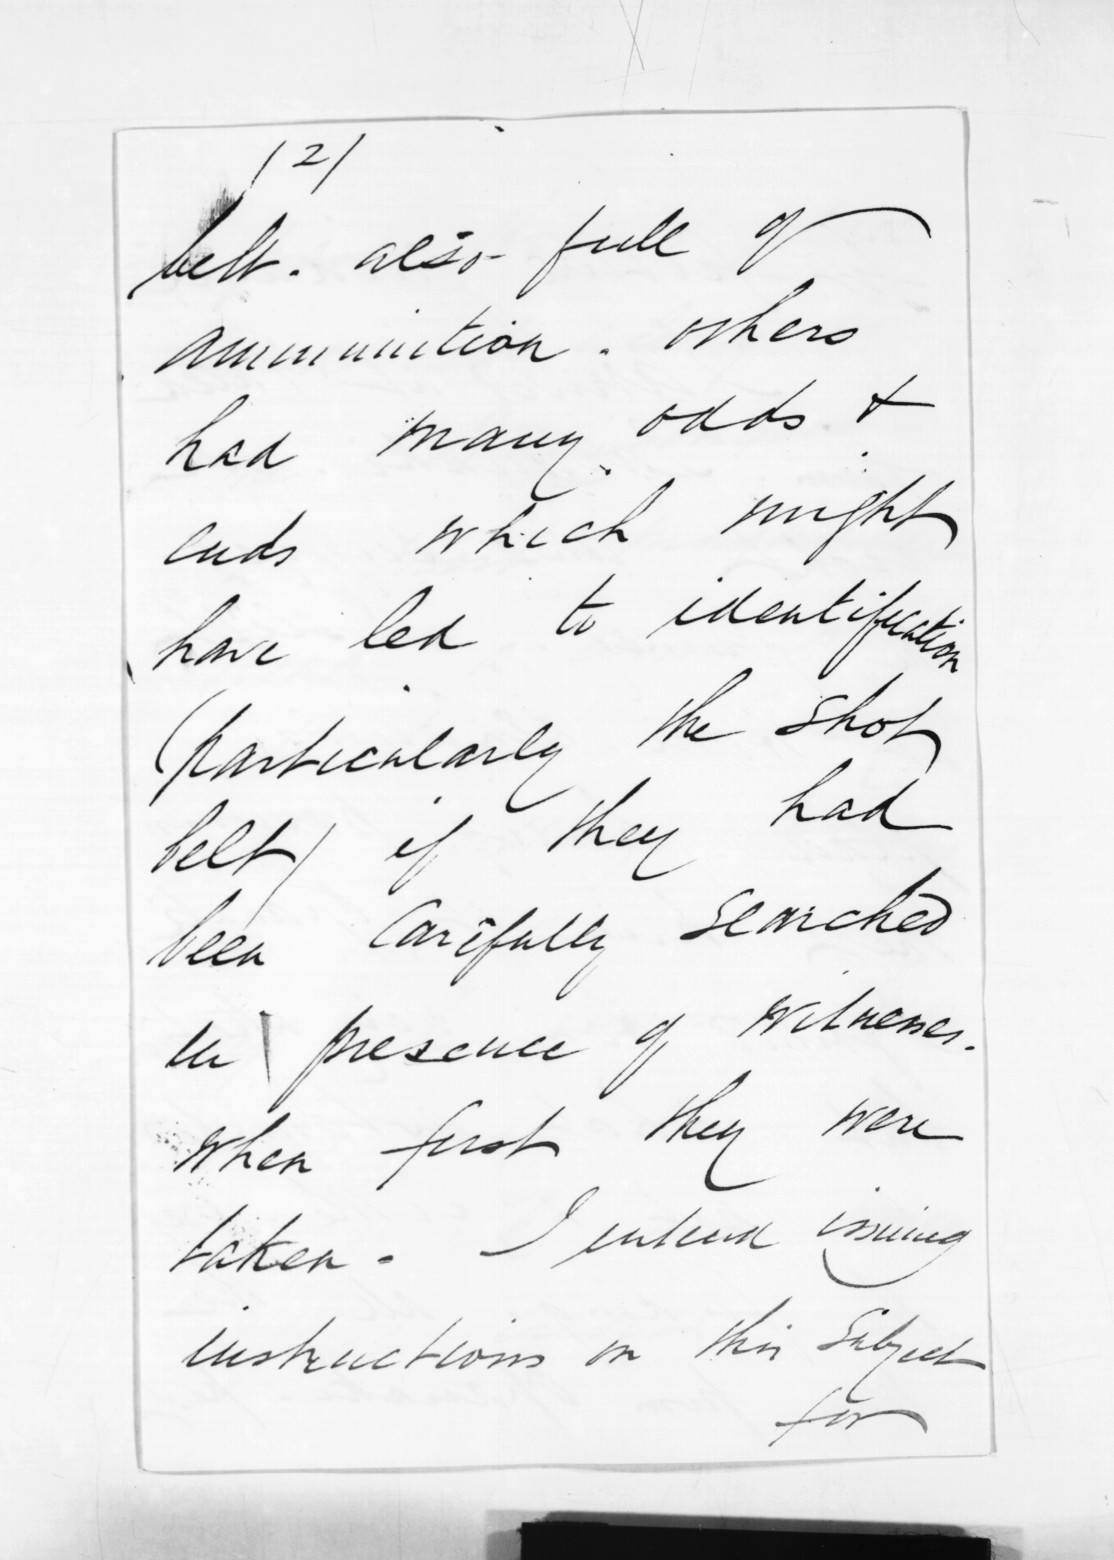 /2/
belt. also full of
ammunition. others
had many odds &
ends which might
have led to identification
(particularly the shot
belt) if they had
been carefully searched
in presence of witnesses.
when first they were
taken. I intend issuing
instructions on this subject
for